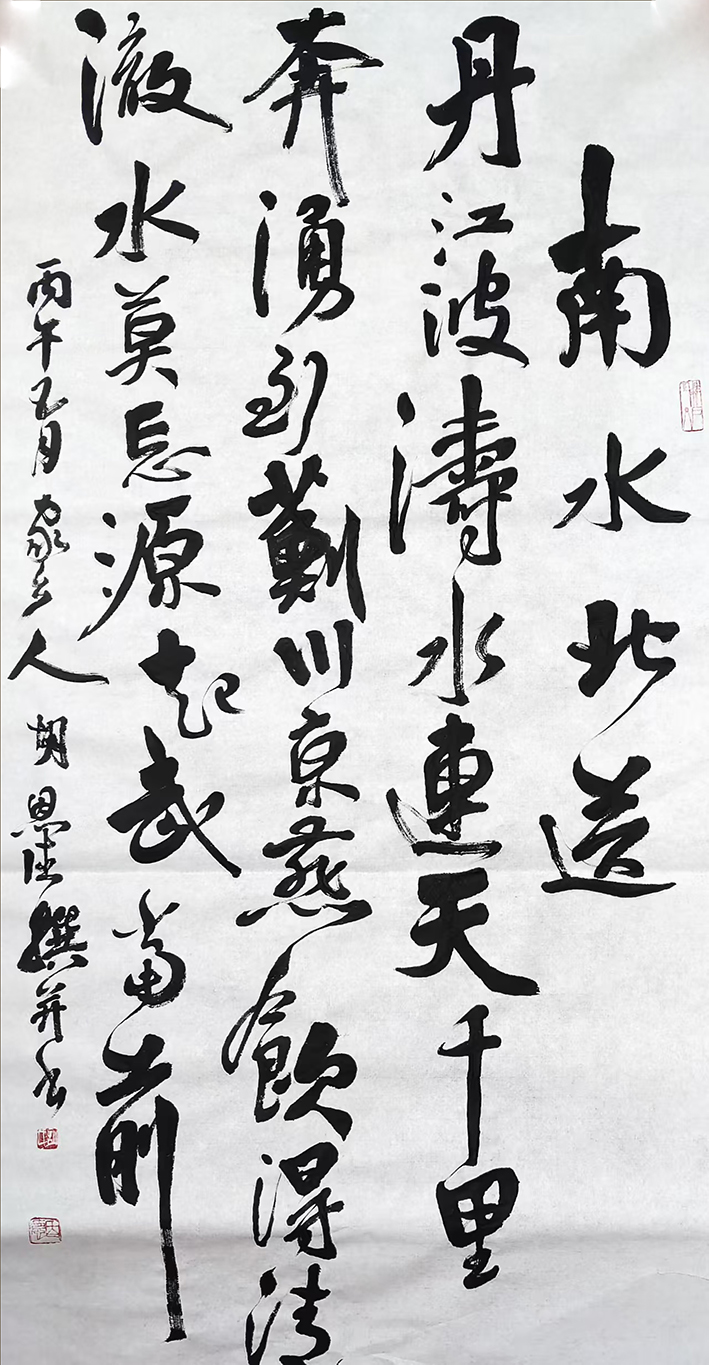 南水北送
丹江波濤水連天千里
奔湧到薊川京燕飲得清
澈水莫忘源起武當前
丙午五月 人 胡恩撰并书